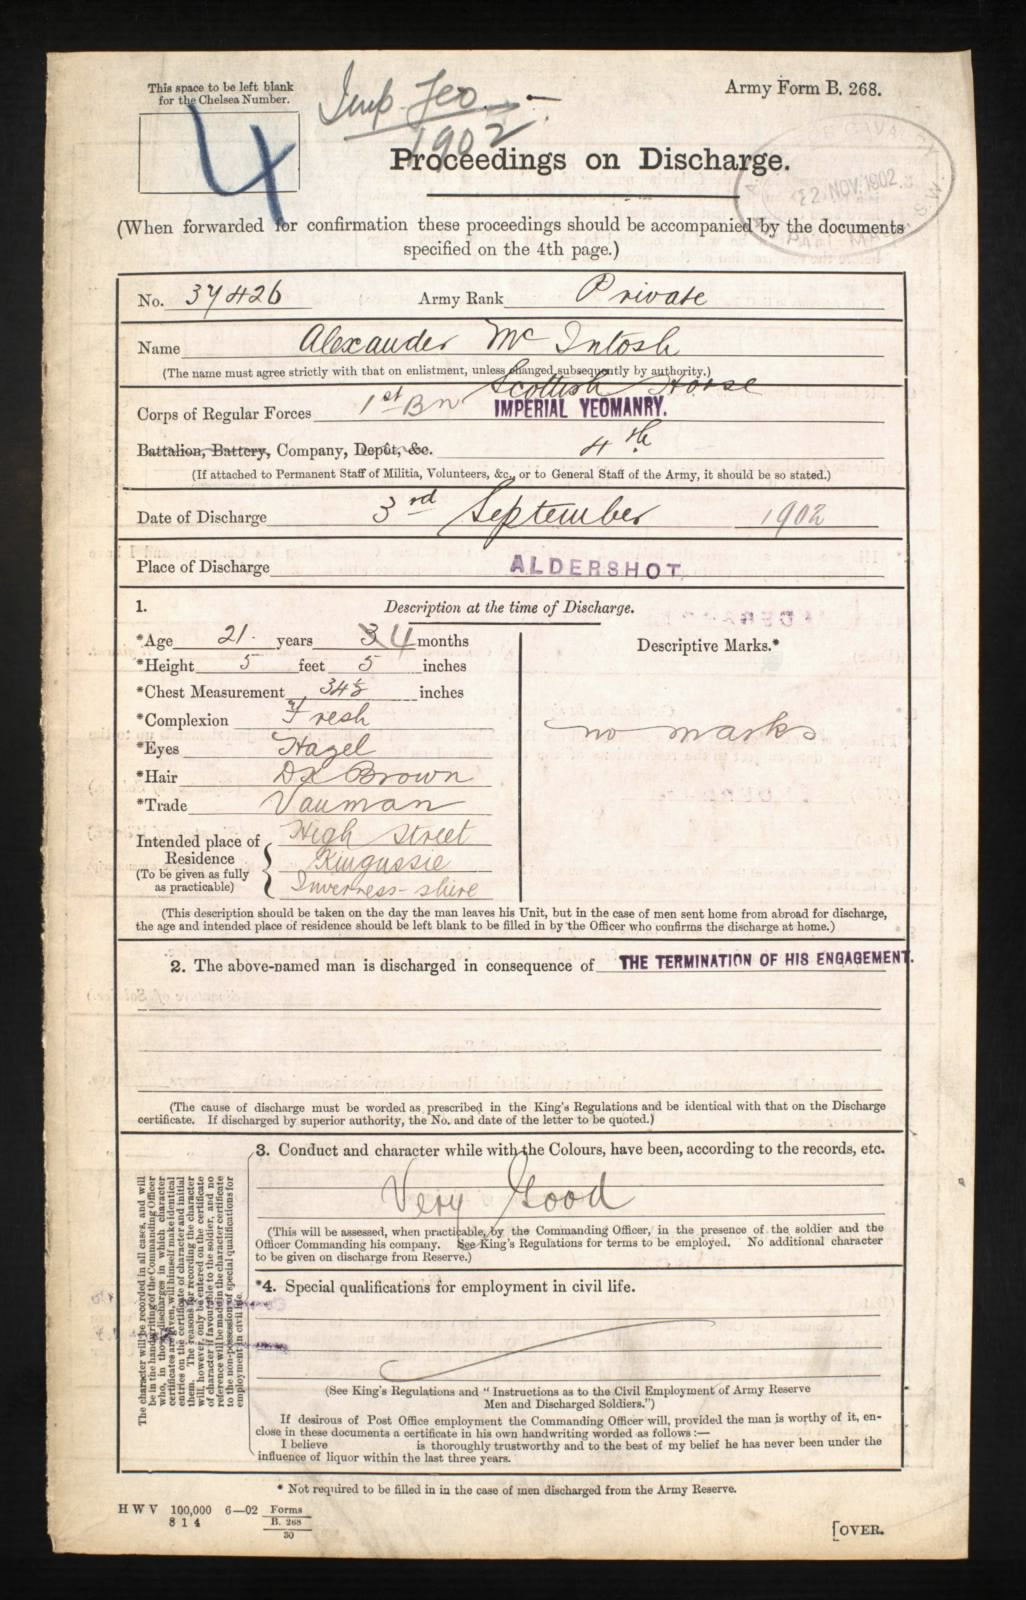 This space to be left blank
for the Chelsea Number.
4
Imp Yeo
1902
Army Form B. 268.
Proceedings on Discharge.
22 NOV. 1902
(When forwarded for confirmation these proceedings should be accompanied by the documents
specified on the 4th page.)
No. 37426 Army Rank Private
Name Alexander McIntosh
(The name must agree strictly with that on enlistment, unless changed subsequently by authority.)
Scottish Horse
Corps of Regular Forces 1st Bn IMPERIAL YEOMANRY.
Battalion, Battery, Company, Depôt, &c. 4th
(If attached to Permanent Staff of Militia, Volunteers, &c., or to General Staff of the Army, it should be so stated.)
Date of Discharge 3rd September 1902
Place of Discharge ALDERSHOT
1. Description at the time of Discharge.
*Age 21 years 4 months
*Height 5 feet 5 inches
*Chest Measurement 34½ inches
*Complexion Fresh
*Eyes Hazel
*Hair Dk Brown
*Trade Vanman
Intended place of Residence (To be given as fully as practicable)
High Street
Kingussie
Inverness-shire
Descriptive Marks.*
no marks
(This description should be taken on the day the man leaves his Unit, but in the case of men sent home from abroad for discharge,
the age and intended place of residence should be left blank to be filled in by the Officer who confirms the discharge at home.)
2. The above-named man is discharged in consequence of THE TERMINATION OF HIS ENGAGEMENT.
(The cause of discharge must be worded as prescribed in the King's Regulations and be identical with that on the Discharge
certificate. If discharged by superior authority, the No. and date of the letter to be quoted.)
3. Conduct and character while with the Colours, have been, according to the records, etc.
Very Good
(This will be assessed, when practicable, by the Commanding Officer, in the presence of the soldier and the
Officer Commanding his company. See King's Regulations for terms to be employed. No additional character
to be given on discharge from Reserve.)
*4. Special qualifications for employment in civil life.
(See King's Regulations and "Instructions as to the Civil Employment of Army Reserve
Men and Discharged Soldiers.")
If desirous of Post Office employment the Commanding Officer will, provided the man is worthy of it, en-
close in these documents a certificate in his own handwriting worded as follows :—
I believe is thoroughly trustworthy and to the best of my belief he has never been under the
influence of liquor within the last three years.
The character will be recorded in all cases, and will
be in the handwriting of the Commanding Officer
who, in those discharges in which character
certificates are given, will himself make identical
entries on the certificate of character and initial
them. The reasons for recording the character
will, however, only be entered on the certificate
of character if favourable to the soldier, and no
reference will be made in the character certificate
to the non-possession of special qualifications for
employment in civil life.
* Not required to be filled in in the case of men discharged from the Army Reserve.
H W V 100,000 6—02 Forms
8 1 4 B. 268
30
[OVER.